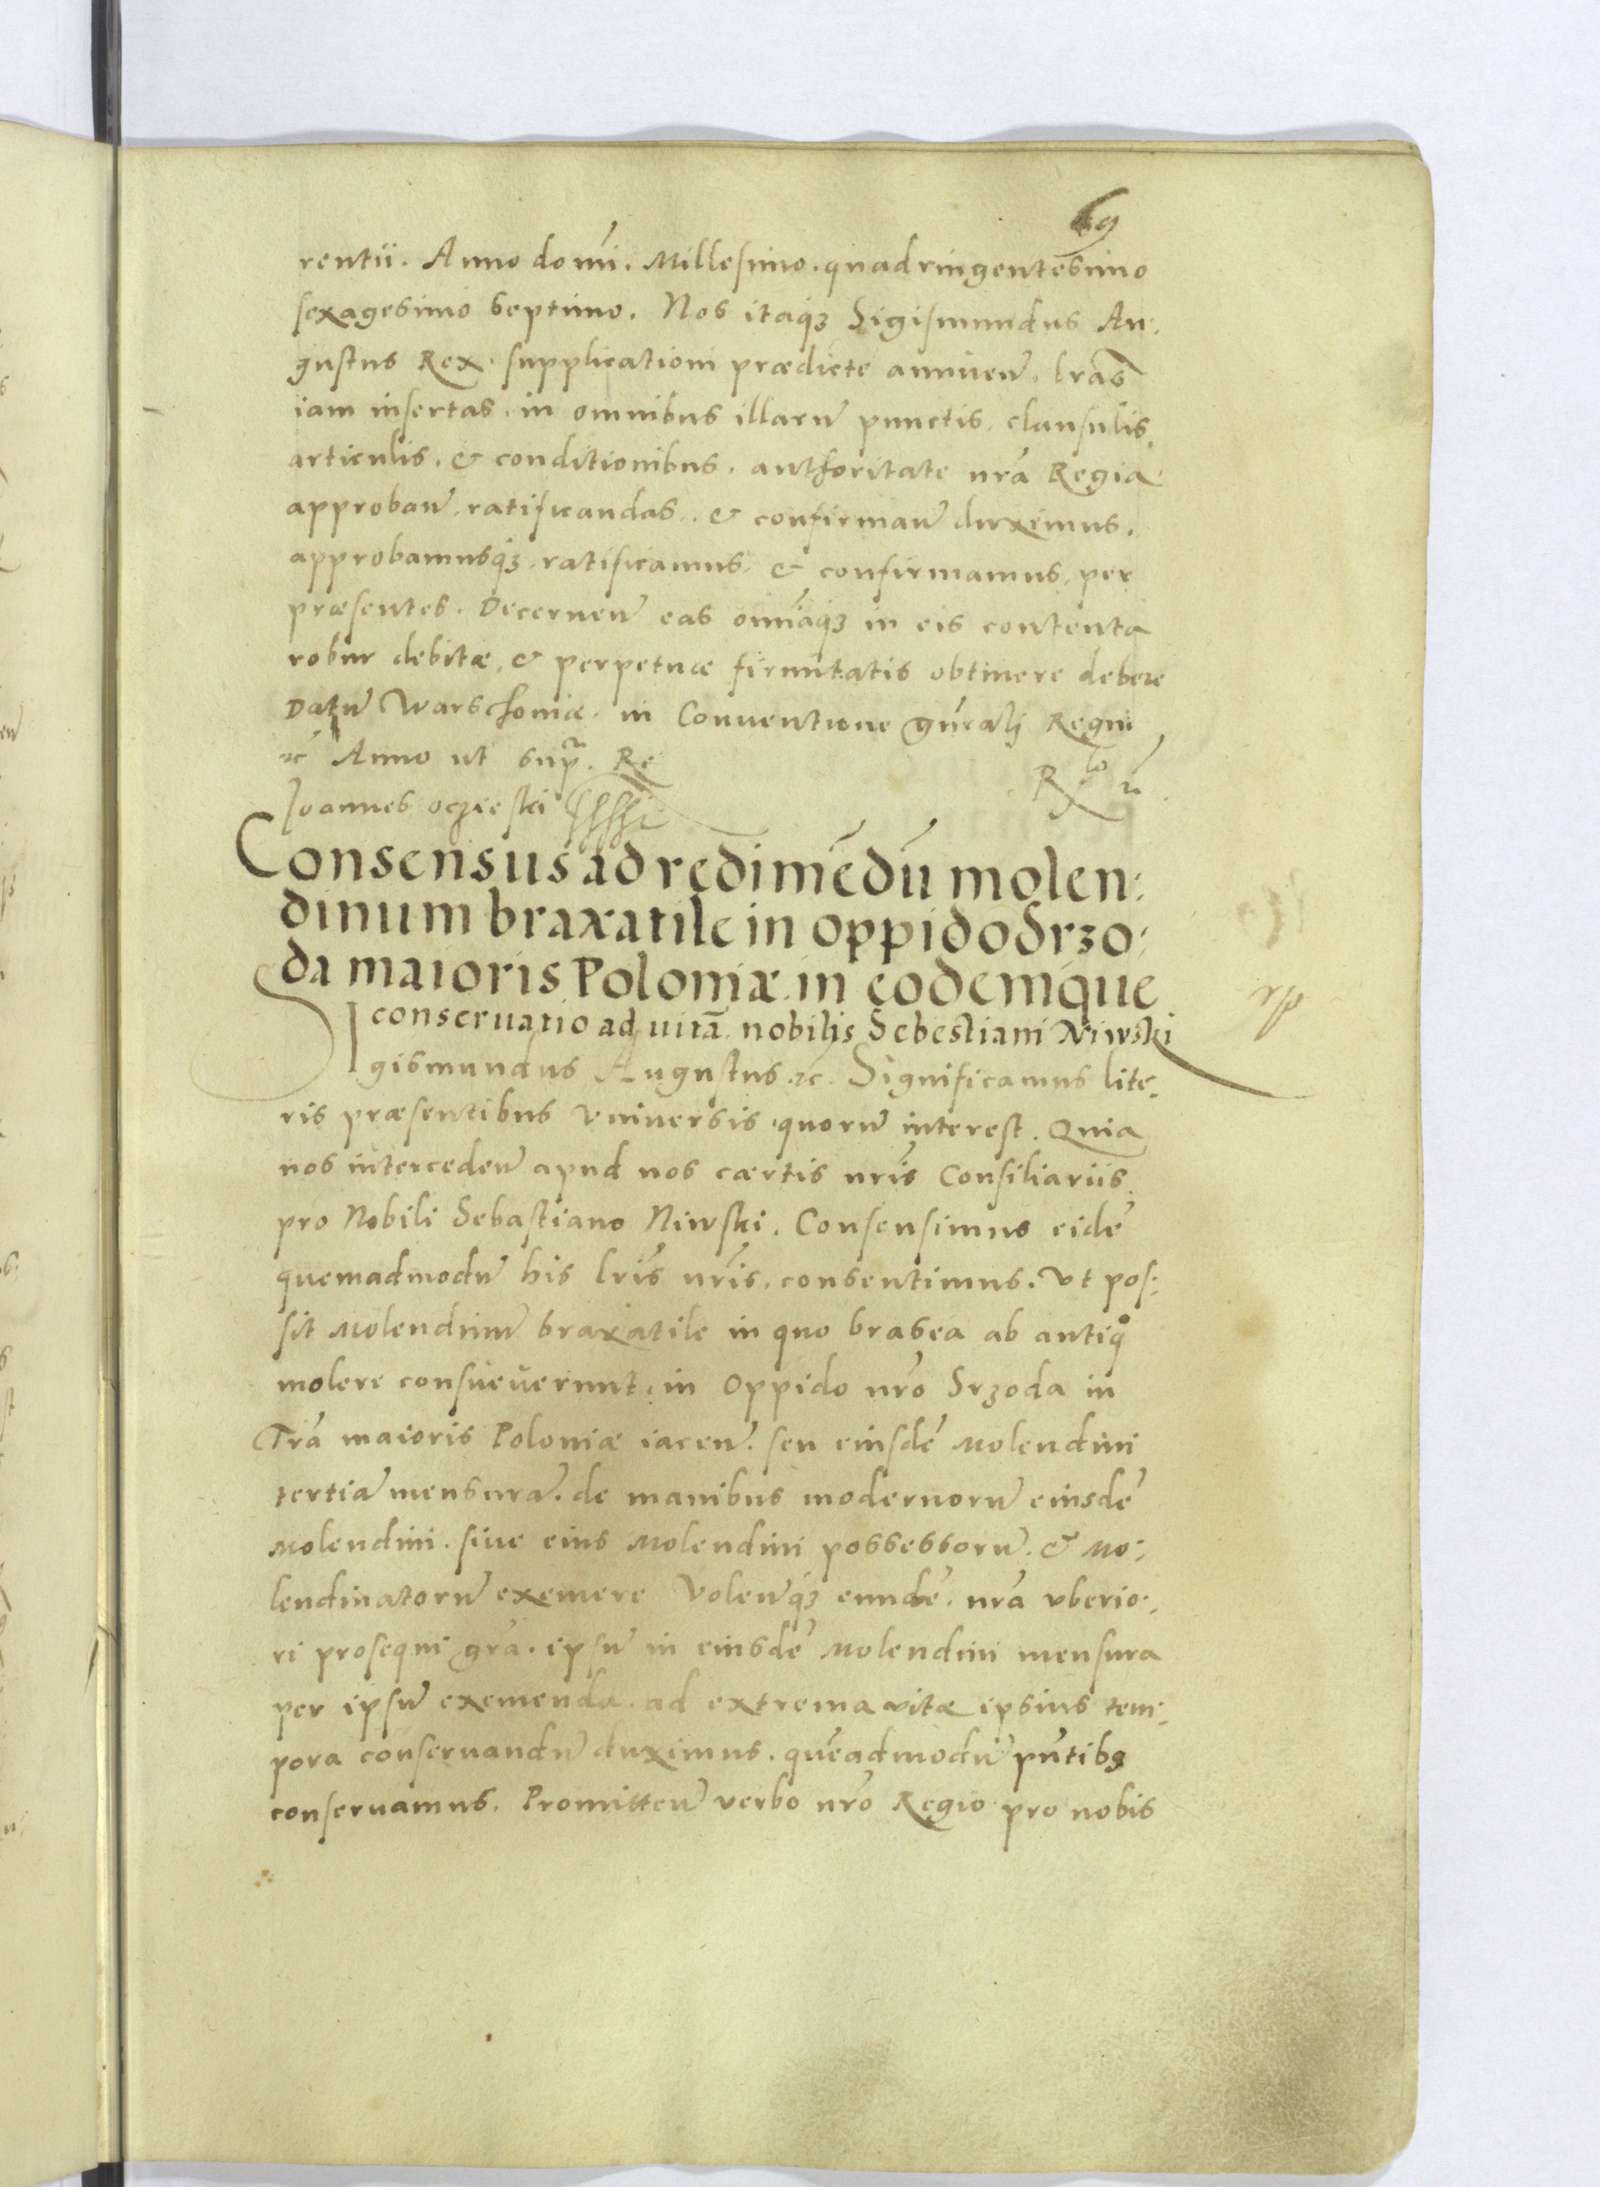 69
rentii. Anno domi. Millesimo. quadringentesimo
sexagesimo septimo. Nos itaqȝ Sigismundus Au:
gustus Rex. supplicationi prædicte annuen̄. lr̄as
iam insertas. in omnibus illarū punctis. clausulis.
articulis. & conditionibus. authoritate nr̄a Regia
approban̄. ratificandas. & confirman̄ duximus.
approbamusqȝ. ratificamus. & confirmamus. per
præsentes. Decernen̄ eas omniaqȝ in eis contenta
robur debitæ. & perpetuæ firmitatis obtinere debere
Datū Warschoniæ. in Conventione gn̄rali Regni
ꝛc Anno ut supr̄. Re
R lo ñ
Joannes oczieski
Consensus ad redimēdū molen:
dinum braxatile in oppido Srzo:
da maioris Poloniæ. in eodemque
conservatio ad vitā nobilis Sebestiani Niwski
Sigismundus Augustus ꝛc. Significamus lite:
ris præsentibus Vniversis quorū interest. Quia
nos interceden̄ apud nos cærtis nr̄is Consiliariis
pro Nobili Sebastiano Niwski. Consensimus eidē
quemadmodū his lr̄is nr̄is. consentimus. Vt pos:
sit Molendinū braxatile in quo brasea ab antiqͦ
molere consueverunt. in Oppido nr̄o Srzoda in
Tr̄a maioris Poloniæ iacen̄. seu eiusdē Molendini
tertiā mensurā. de manibus modernorū eiusdē
Molendini. sive eius Molendini possessorū. & Mo:
lendinatorū exemere Volen̄qȝ eundē. nr̄a vberio:
ri prosequi gr̄a. ipsū in eiusdē Molendini mensura
per ipsū exemenda. ad extrema vitæ ipsius tem:
pora conservandū duximus. quēadmodū pn̄tibȝ
conservamus. Promitten̄ verbo nr̄o Regio pro nobis